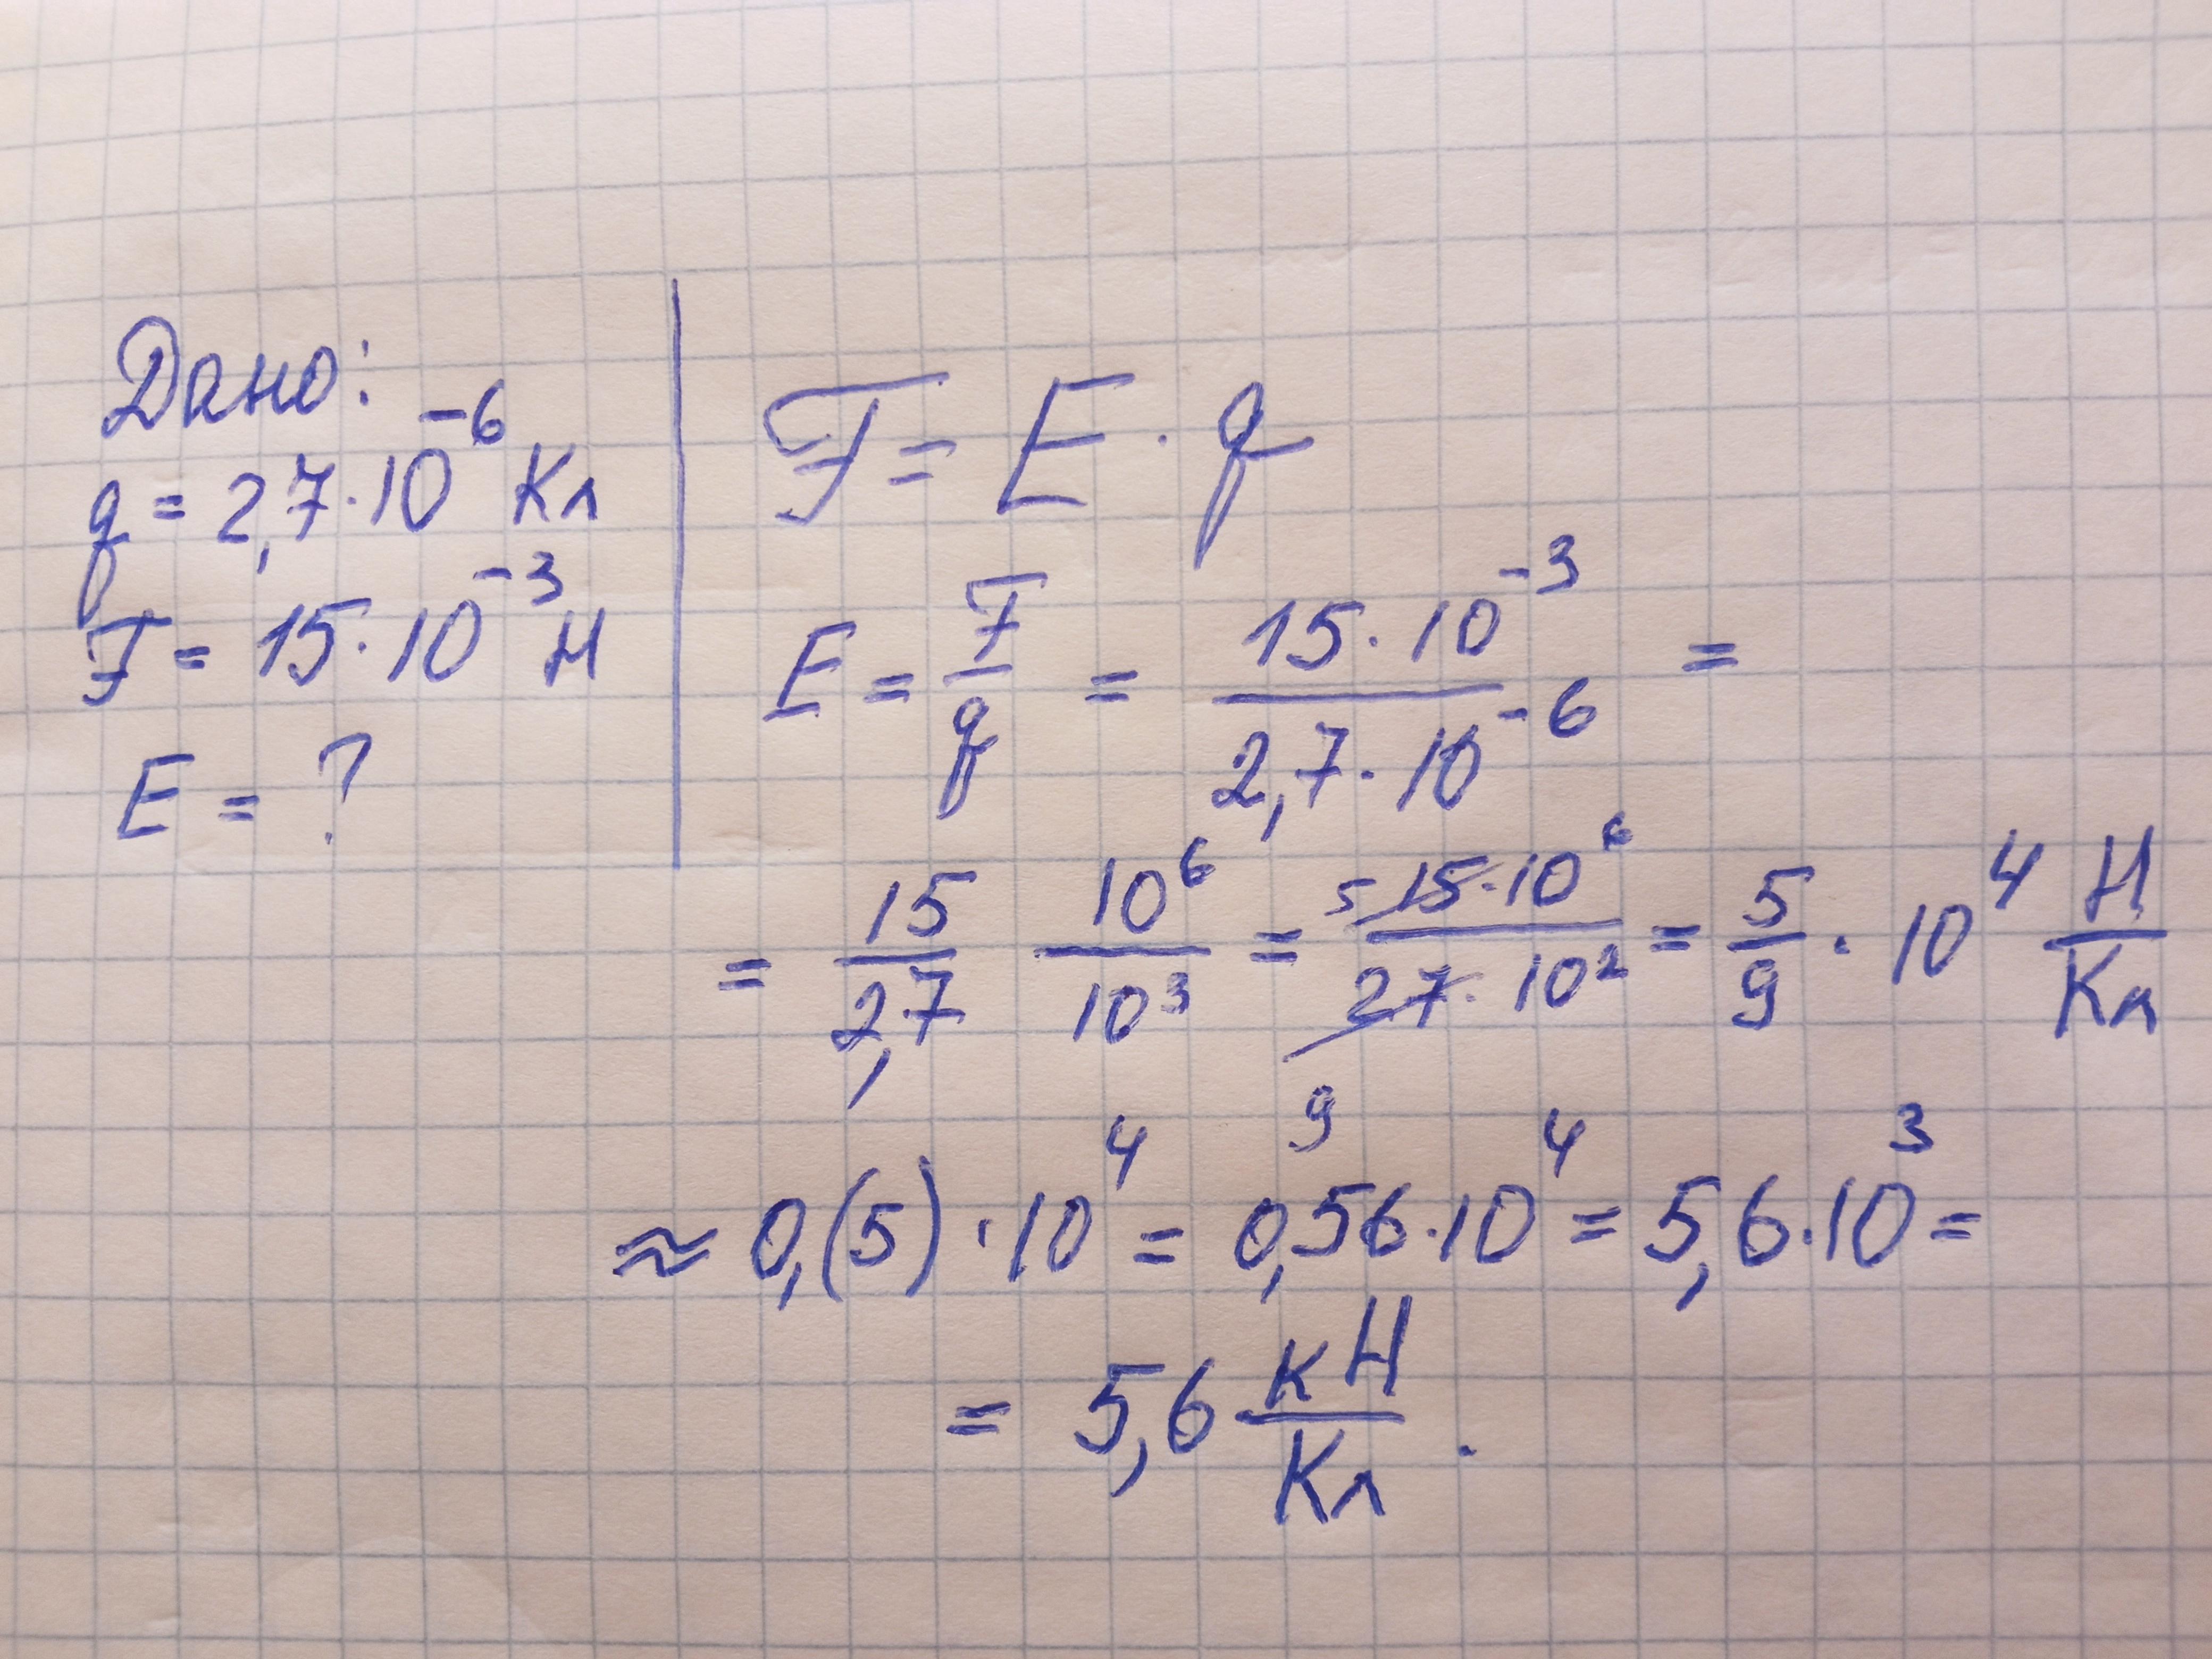 Дано:
q = 2,7·10⁻⁶ Кл
F = 15·10⁻³ Н
E = ?
F = E · q
E = F/q = 15·10⁻³ / 2,7·10⁻⁶ =
= 15/2,7 10⁶/10³ = 5 15·10⁶ / 27·10² 9 = 5/9 · 10⁴ Н/Кл
≈ 0,(5) · 10⁴ = 0,56·10⁴ = 5,6·10³ =
= 5,6 кН/Кл .